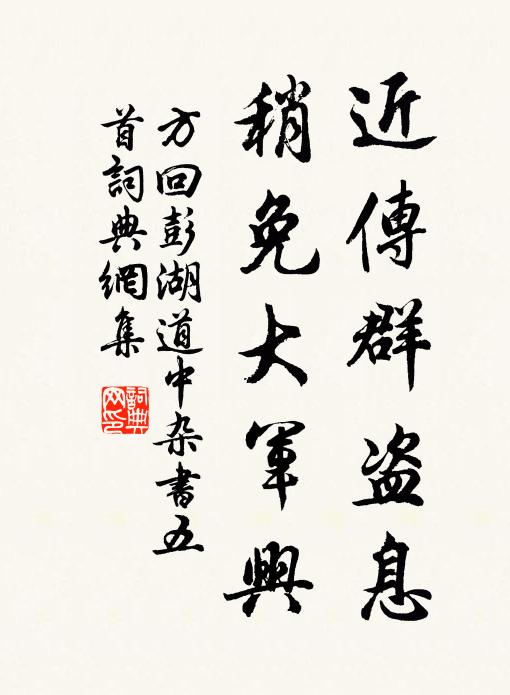 近傳群盗息
稍免大軍興
方回彭湖道中杂書五
首詞典網集
詞典網印